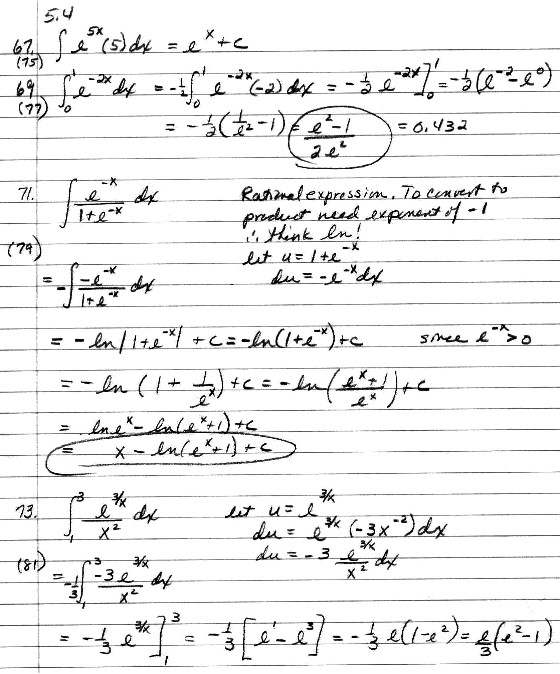 5.4
67. ∫ e^{5x} (5) dx = e^x + c
(75)
69. ∫_0^1 e^{-2x} dx = -1/2 ∫_0^1 e^{-2x} (-2) dx = -1/2 e^{-2x} ]_0^1 = -1/2 (e^{-2} - e^0)
(77)
= -1/2 (1/e^2 - 1) = (e^2 - 1)/(2e^2) = 0.432
71. ∫ e^{-x}/(1+e^{-x}) dx Rational expression. To convert to
product need exponent of -1
∴ think ln!
(79) let u = 1+e^{-x}
= -∫ -e^{-x}/(1+e^{-x}) dx du = -e^{-x} dx
= -ln|1+e^{-x}| + c = -ln(1+e^{-x}) + c since e^{-x} > 0
= -ln (1 + 1/e^x) + c = -ln((e^x+1)/e^x) + c
= ln e^x - ln(e^x+1) + c
= x - ln(e^x+1) + c
73. ∫_1^3 e^{3/x}/x^2 dx let u = e^{3/x}
du = e^{3/x} (-3x^{-2}) dx
(81) du = -3 e^{3/x}/x^2 dx
= -1/3 ∫_1^3 -3e^{3/x}/x^2 dx
= -1/3 e^{3/x} ]_1^3 = -1/3 [e^1 - e^3] = -1/3 e(1-e^2) = e/3 (e^2-1)